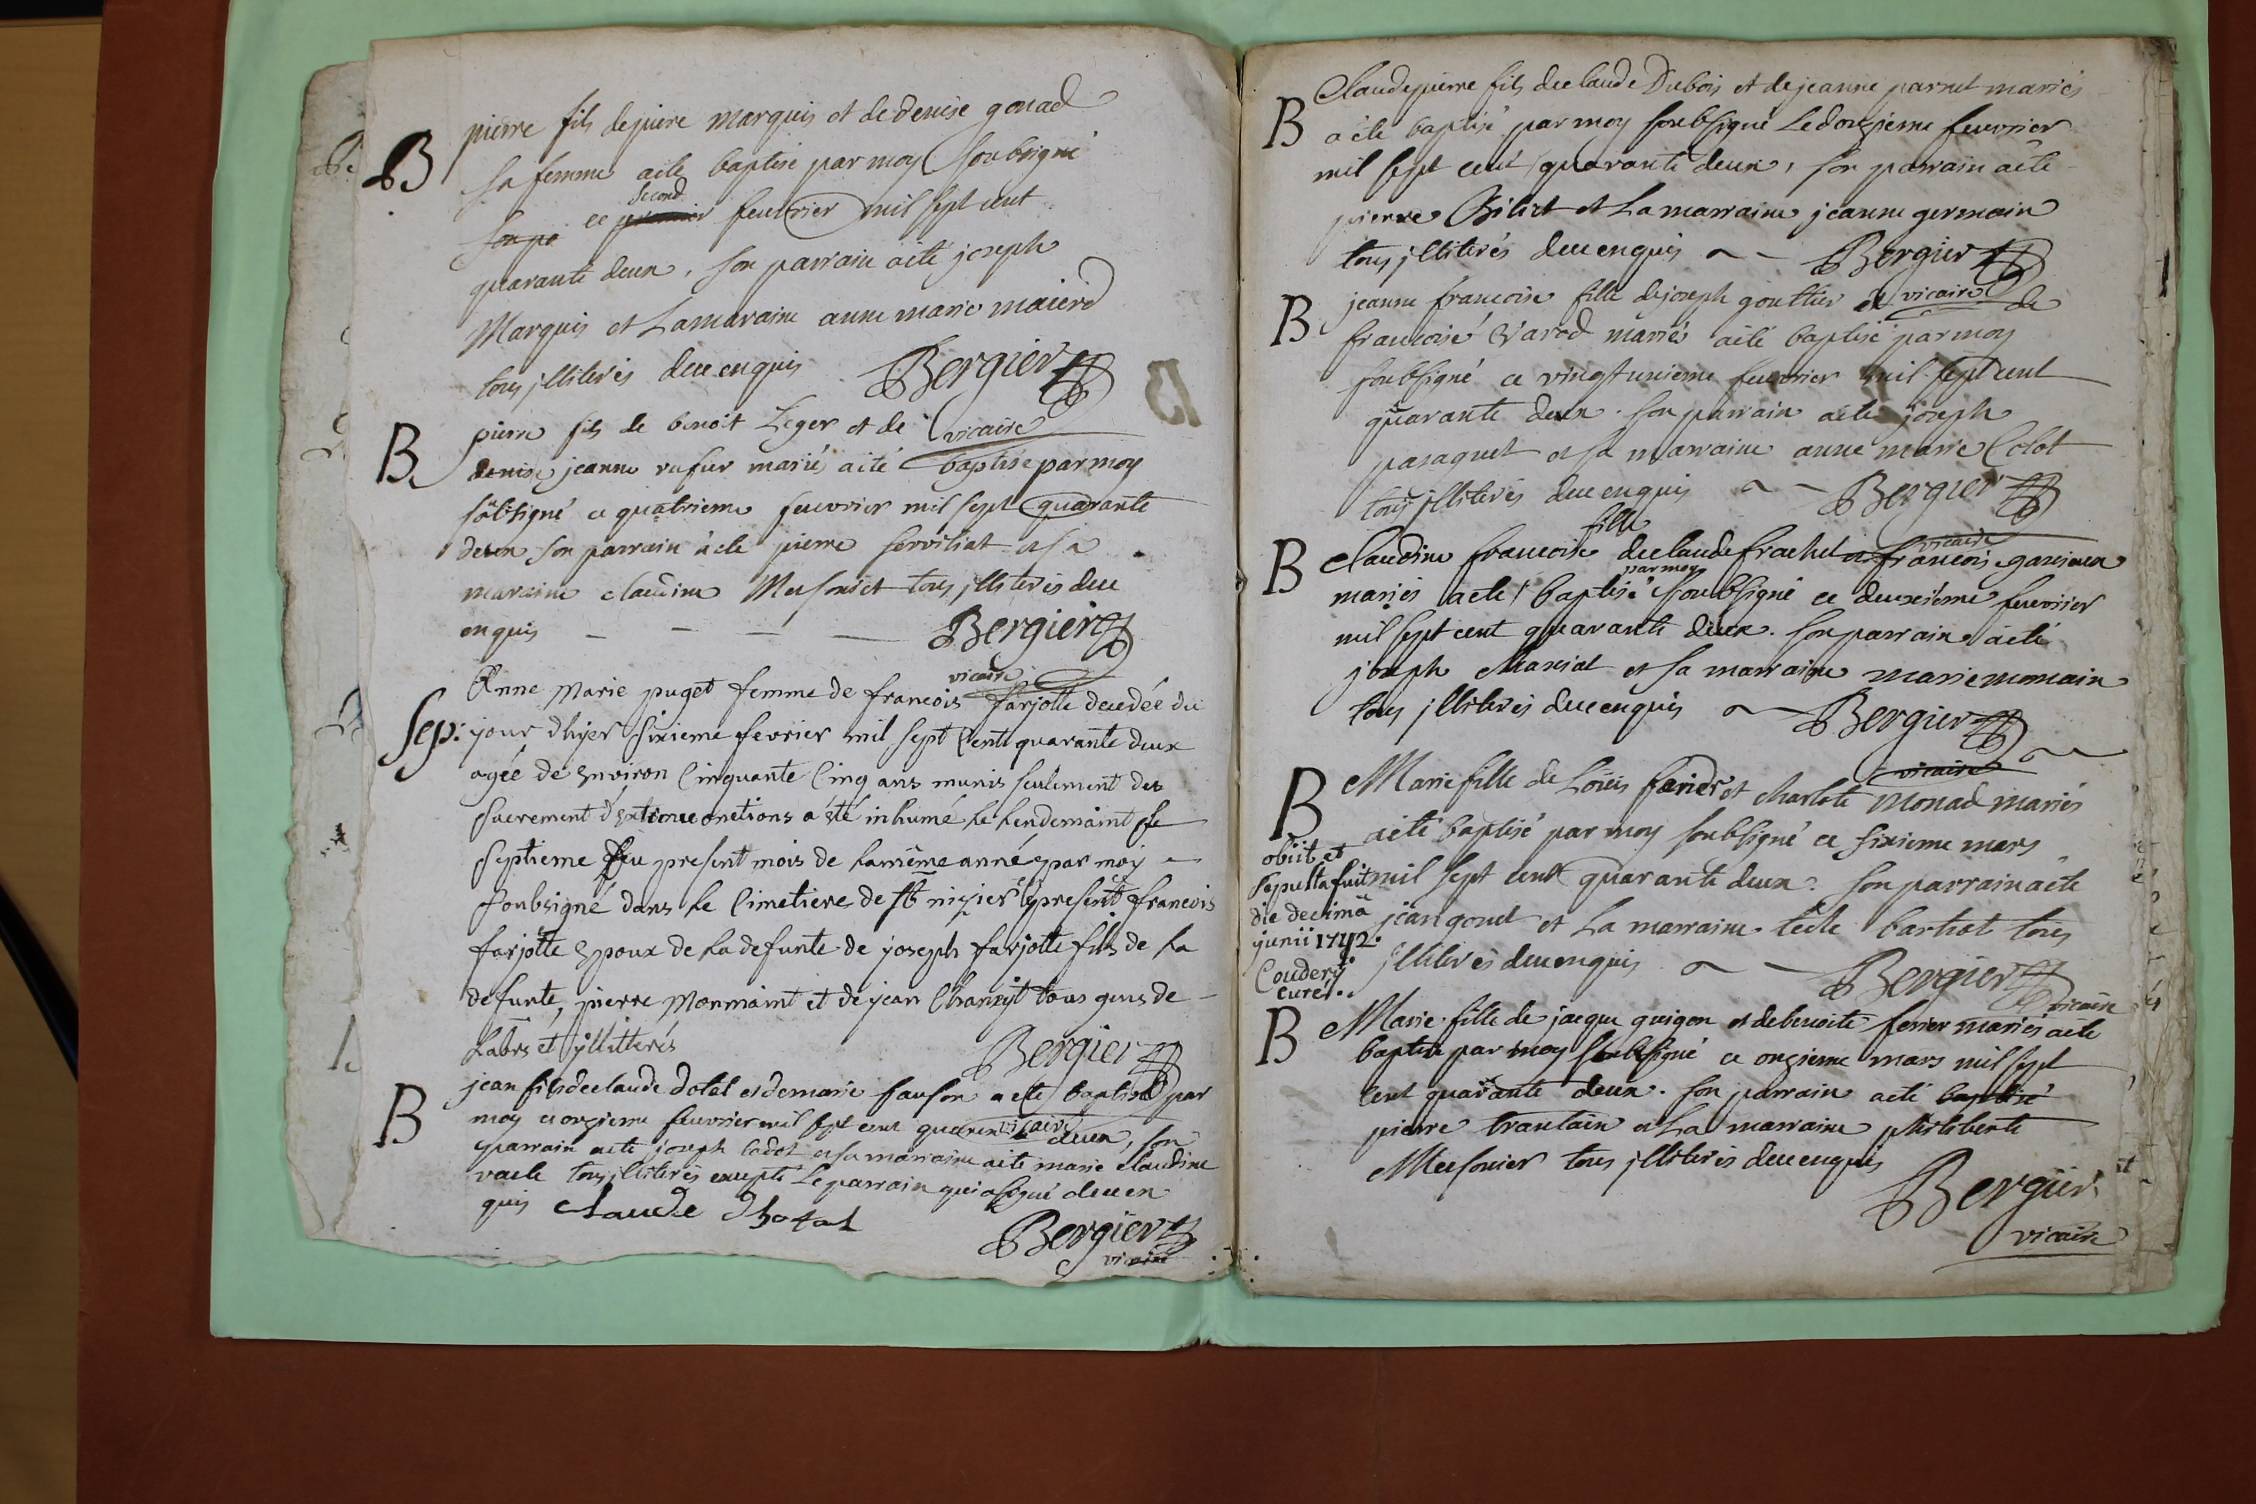 B
pierre fils de piere marquis et de denise gonad
sa femme a ete baptisé par moy soubsigné
second
ce premier feuvrier mil sept cent
quarante deux, son parrain a êté joseph
Marquis et La maraine anne marie maierd
tous jlliterés de ce enquis Bergier
vicaire
B
pierre fils de benoit Leger et de
denise jeanne rufur mariés a êté baptisé par moy
sôbsigné ce quatrieme feuvrier mil sept quarante
deux son parrain a ete pierre serviliat et sa
maraine claudine Meusoniet tous jlliterés de ce
enquis Bergier
vicaire
Sep:
Anne Marie puget femme de francois farjotte decedée du
jour d'hyer sixieme fevrier mil sept Cent quarante deux
agée de Environ Cinquante Cinq ans munis seulement des
sacrement d'extreme onctions a été inhumé le lendemaint le
septieme du present mois de la même anné par moy
soubsigné dans le Cimetiere de St nizier le present francois
farjotte Epoux de la defunte de joseph farjotte fils de la
defunte, pierre Monmaint et de jean Chanzyt tous gens de
Labrs et jllitterés
Bergier
vicaire
B
jean fils de claude dotal et de marie fauson a ete baptisé par
moy ce onzieme feuvrier mil sept cent quarente deux, son
parrain a ete joseph Codot et sa marraine a ete marie Claudine
vacle tous jlliterés excepté Le parrain qui a signé de ce en
quis claude dhotal
Bergier
vicaire
B
Claude pierre fils de claude Dubois et de jeanne parnet mariés
a ête baptisé par moy soubsigné Le douzieme feuvrier
mil sept cent quarante deux, son parrain a été
pierre Biliet et La marraine jeanne germain
tous jlliterés de ce enquis Bergier
vicaire
B
jeanne francoise fille de joseph gouttier et de
francoise Varod mariés a été baptisé par moy
soubsigné ce vingt unieme feuvrier mil sept cent
quarante deux. son parrain a ete joseph
paraquet et sa marraine anne marie Colot
tous jlliterés de ce enquis Bergier
vicaire
B
fille
Claudine francoise de claude frachet et francois ganiaux
par moy
mariés a ete baptisé soubsigné ce deuxieme feuvrier
mil sept cent quarante deux. son parrain a été
joseph Maniat et sa marraine marie momain
tous jlliterés de ce enquis Bergier
vicaire
B
Marie fille de Loüis ferier et charlote Monad mariés
a ête baptisé par moy soubsigné ce sixieme mars
mil sept cent quarante deux. son parrain a ete
jean gonet et La marraine tecle barhot tous
jlliterés de ce enquis Bergier
vicaire
obiit et
sepulta fuit
die decimâ
junii 1742.
Coudery
curé.
B
Marie fille de jacque guigon et de benoite ferier mariés a ete
baptisé par moy soubsigné ce onzieme mars mil sept
cent quarante deux. son parrain a eté baptisé
pierre trantain et La marraine philiberte
Meusonier tous jlliterés de ce enquis
Bergier
vicaire